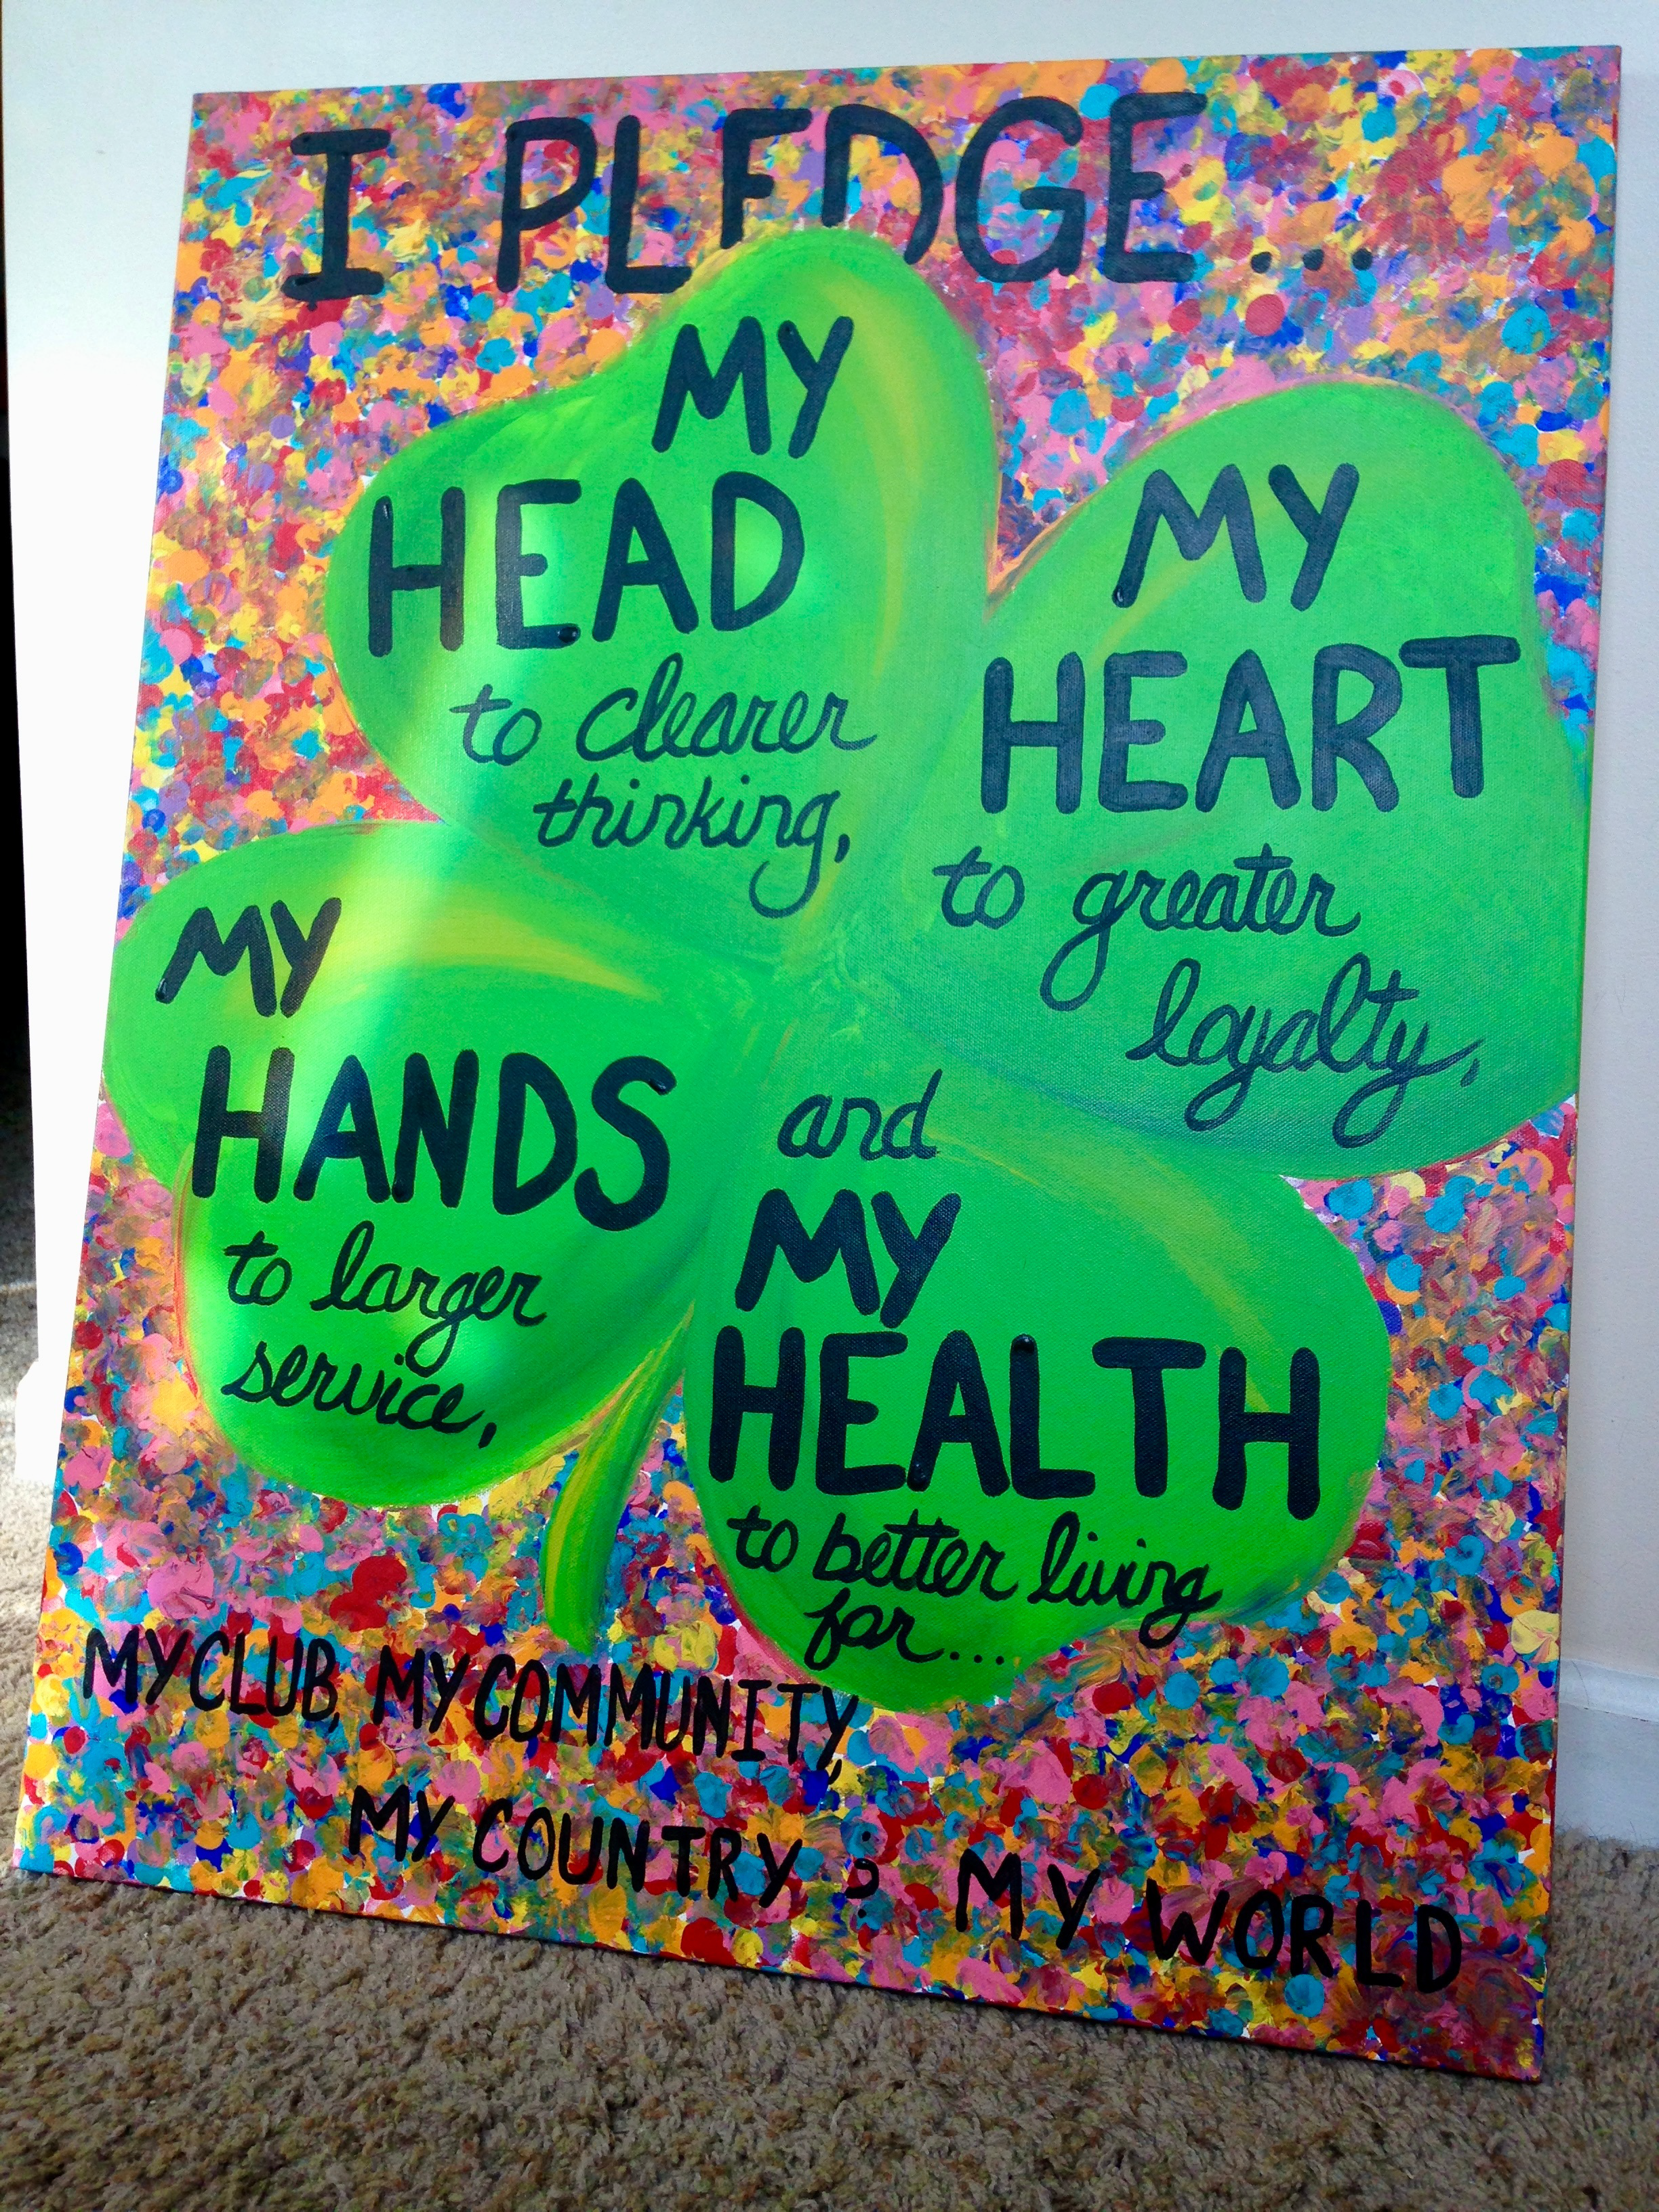 I PLEDGE...
MY
HEAD
to clearer
thinking,
MY
HEART
to greater
loyalty,
MY
HANDS
to larger
service,
and
MY
HEALTH
to better living
for...
MY CLUB, MY COMMUNITY,
MY COUNTRY ; MY WORLD